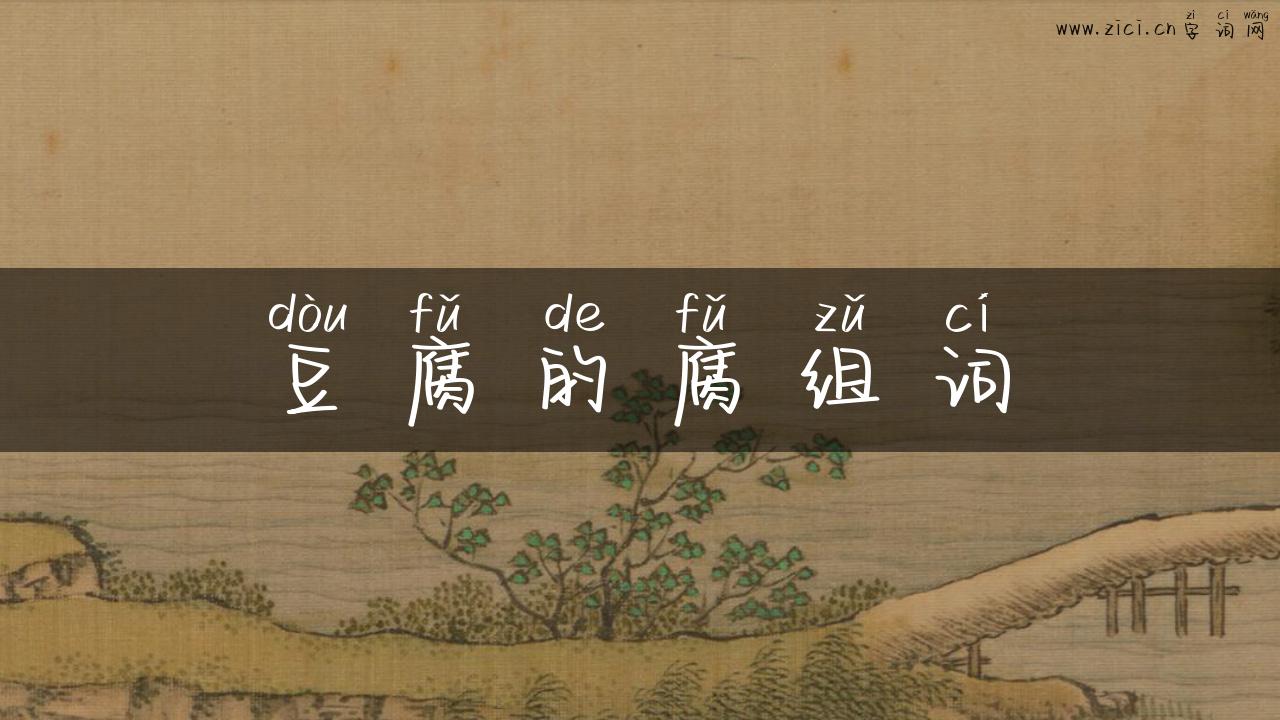 zì cí wǎng
www.zici.cn 字词网
dòu fǔ de fǔ zǔ cí
豆腐的腐组词